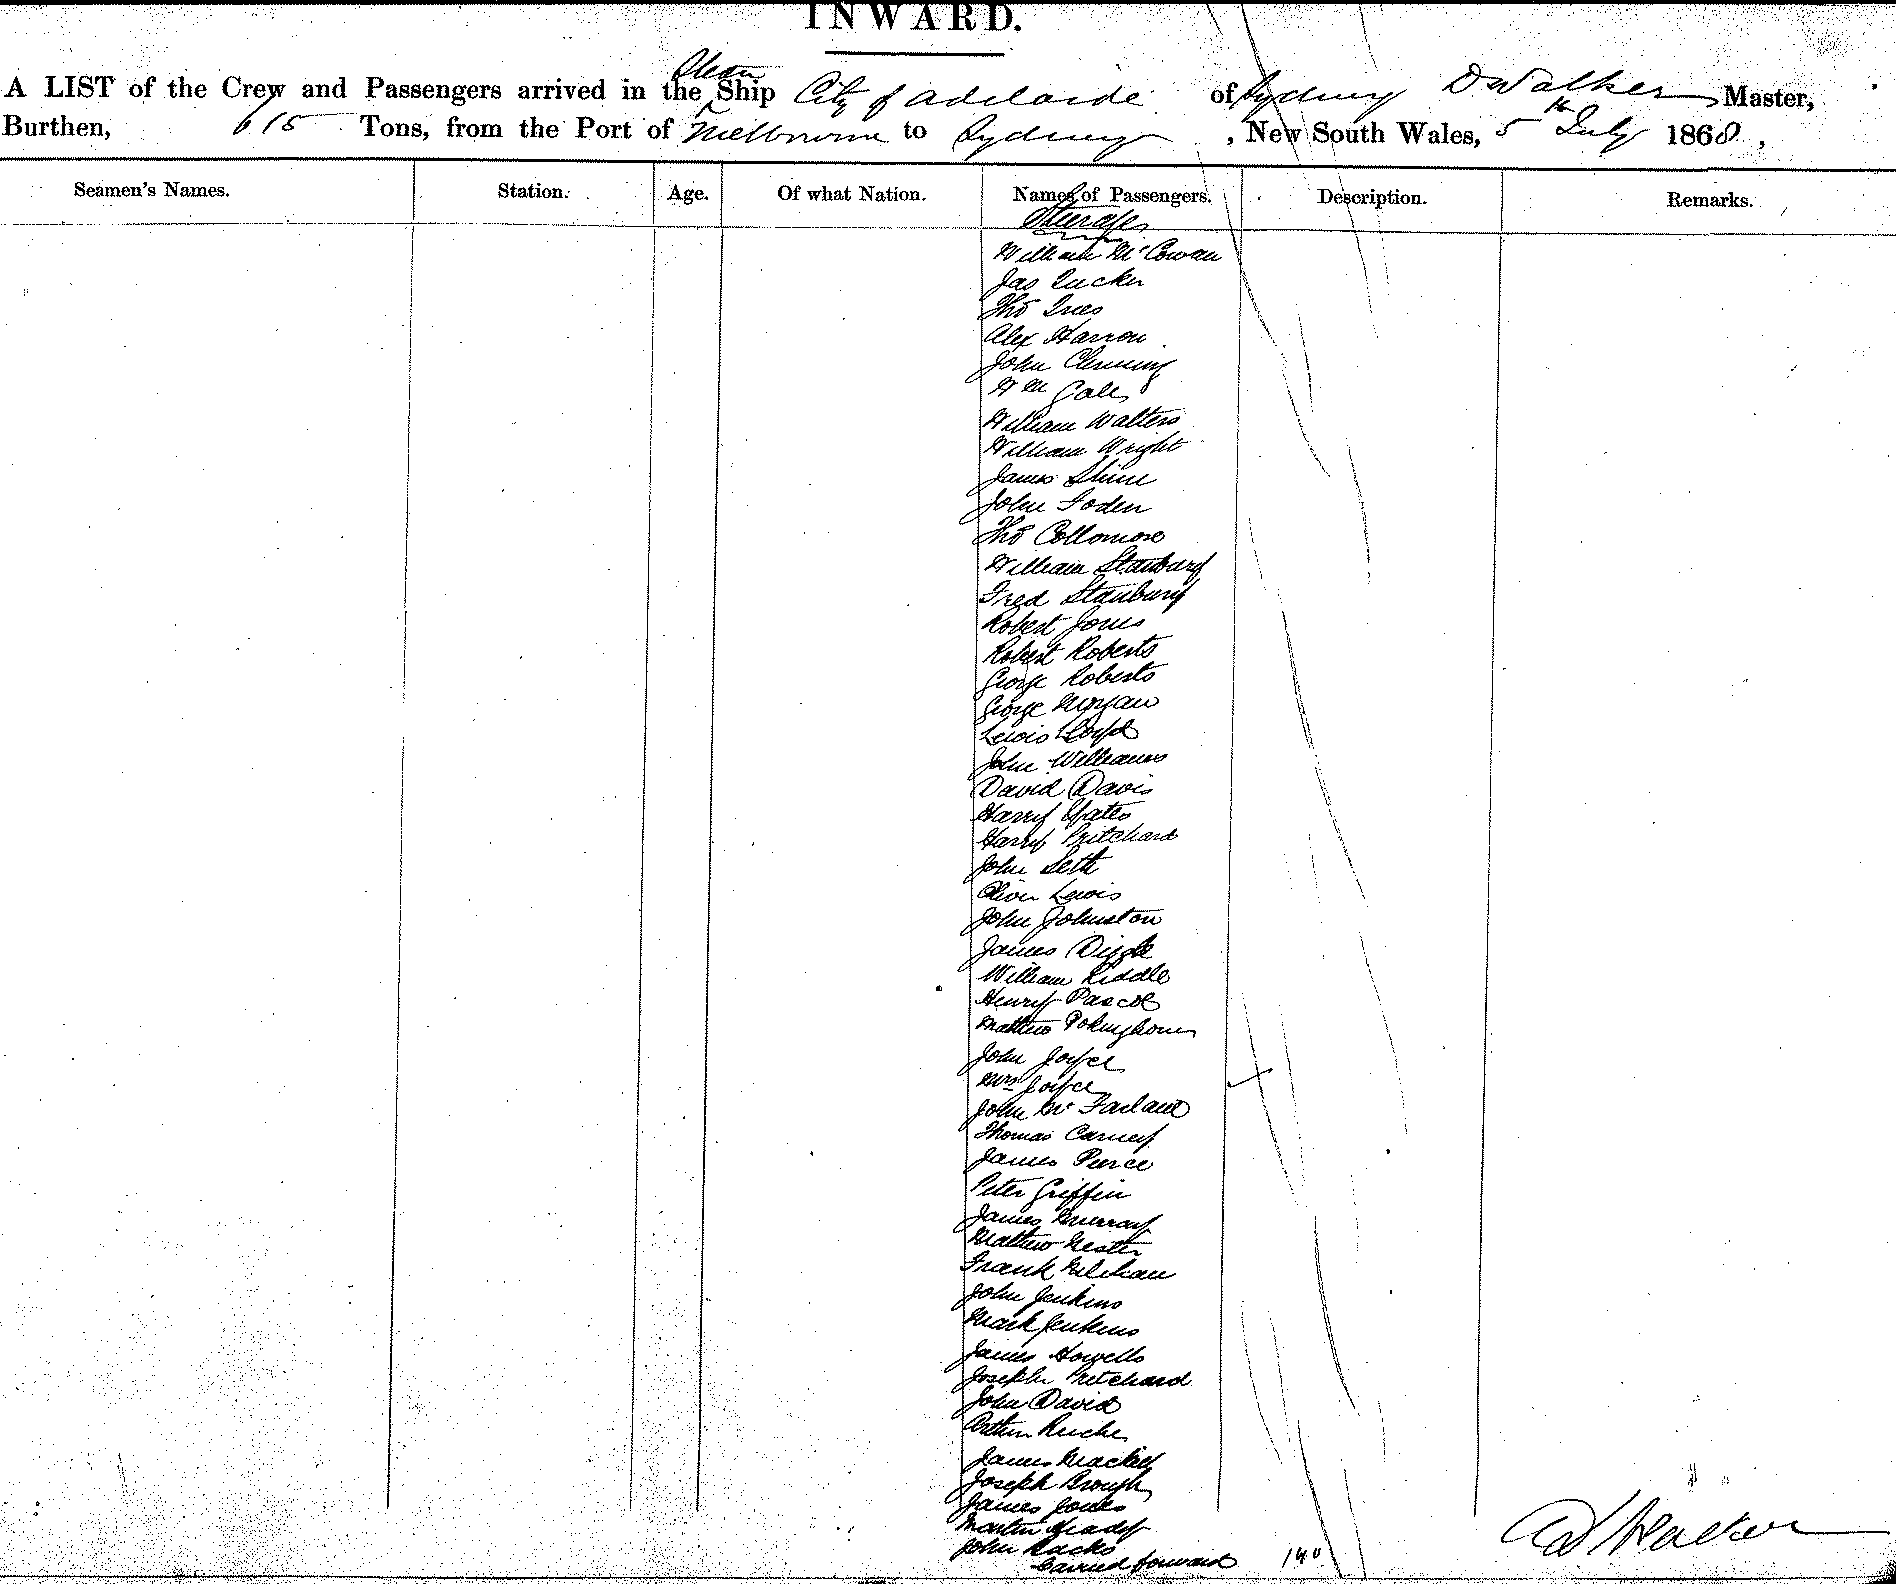 INWARD.
Steam
A LIST of the Crew and Passengers arrived in the Ship City of Adelaide of Sydney D Walker Master,
Burthen, 615 Tons, from the Port of Melbourne to Sydney, New South Wales, 5th July 1868,
Seamen's Names. Station. Age. Of what Nation. Names of Passengers. Description. Remarks.
Steerage
William McCowan
Jas Tucker
Tho Ives
Alex Harron
John Clemming
Wm Gale
William Walters
William Wright
James Shine
John Foden
Tho Collomore
William Stanbury
Fred Stanbury
Robert Jones
Robert Roberts
George Roberts
George Morgan
Lewis Lloyd
John Williams
David Davis
Harry Yates
Harry Pritchard
John Seth
Oliver Lewis
John Johnston
James Diggle
William Riddle
Henry Pascoe
Mattw Polinghorne
John Joyce
Mrs Joyce
John McFarland
Thomas Carney
James Pierce
Peter Griffin
James Murray
Mattw Nester
Frank
John Jenkins
Mark Jenkins
James Howells
Joseph Pritchard
John David
Arthur
James Mackey
Joseph Brough
James Jones
Martin Heady
John Racks
Carried forward 140
D Walker